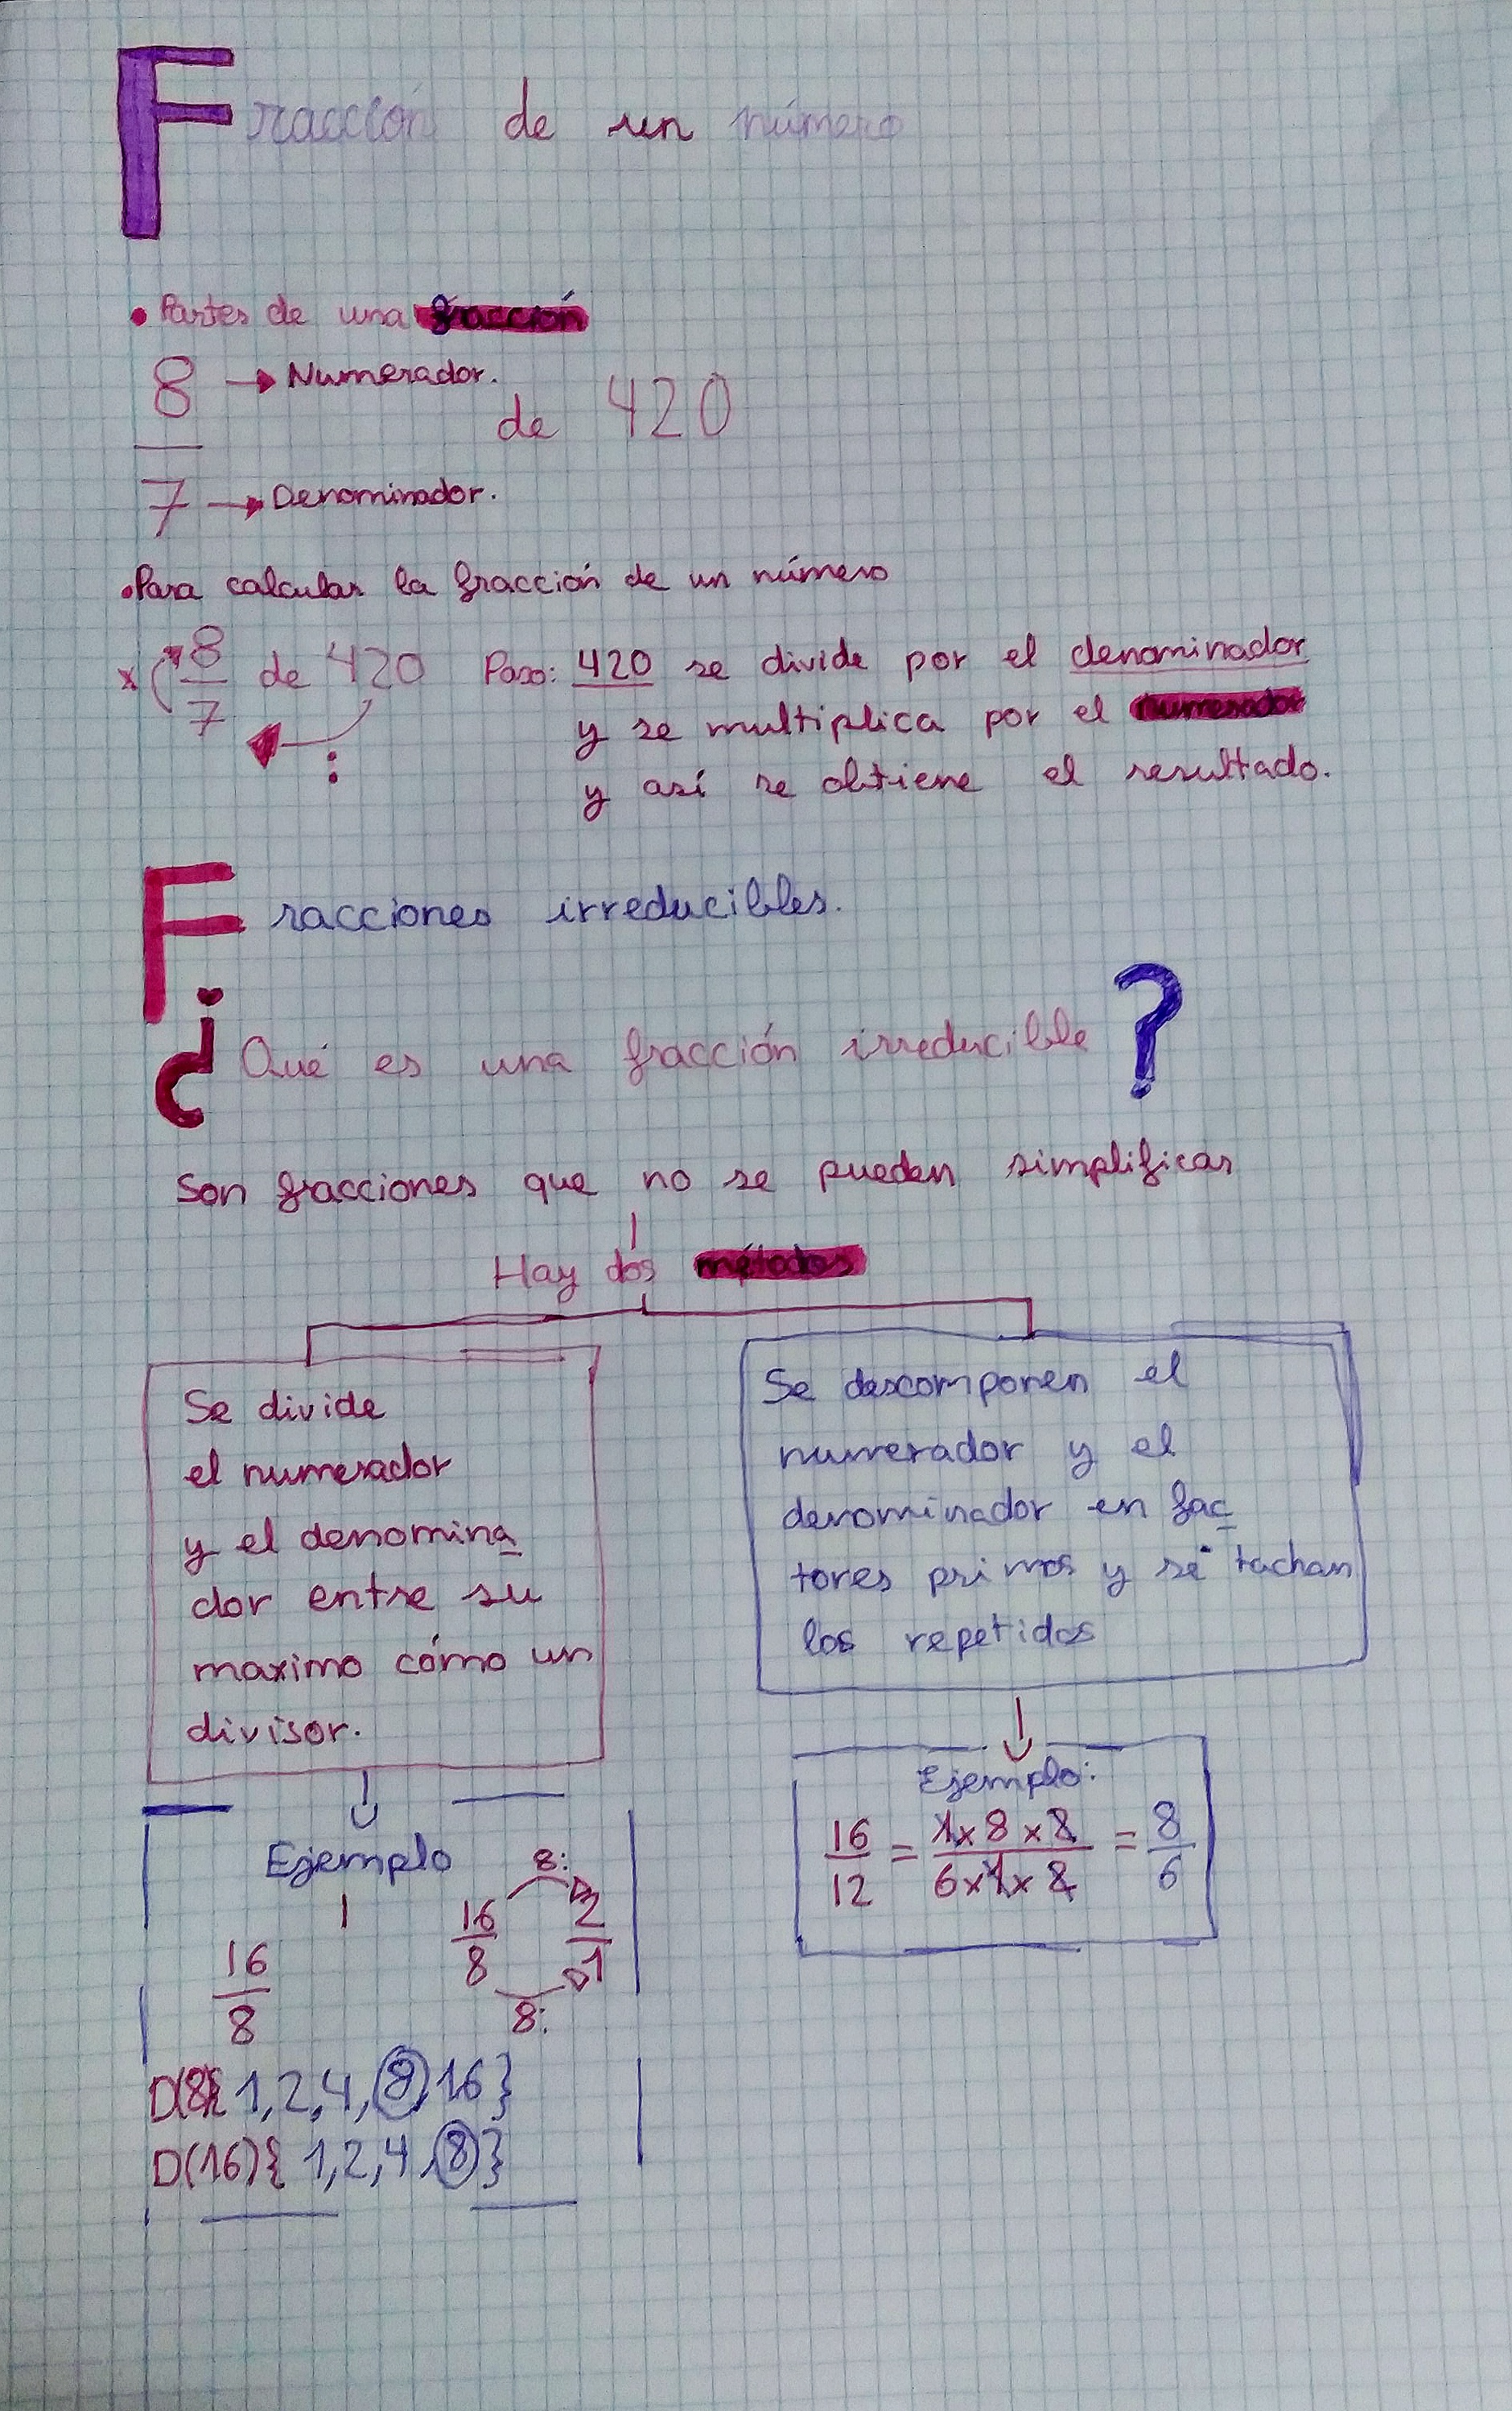 Fracción de un número
• Partes de una fracción
8 → Numerador.
de 420
7 → Denominador.
• Para calcular la fracción de un número
x 8/7 de 420 Paso: 420 se divide por el denominador
:
y se multiplica por el numerador
y así se obtiene el resultado.
Fracciones irreducibles.
¿Qué es una fracción irreducible?
Son fracciones que no se pueden simplificar
Hay dos métodos
Se divide
el numerador
y el denomina
dor entre su
maximo cómo un
divisor.
Ejemplo
16/8
8:
16/8 2/1
8:
D(8{ 1,2,4,8,16}
D(16){ 1,2,4,8}
Se descomponen el
numerador y el
denominador en fac
tores primos y se tachan
los repetidos
Ejemplo:
16/12 = 1x8x8/6x1x8 = 8/6